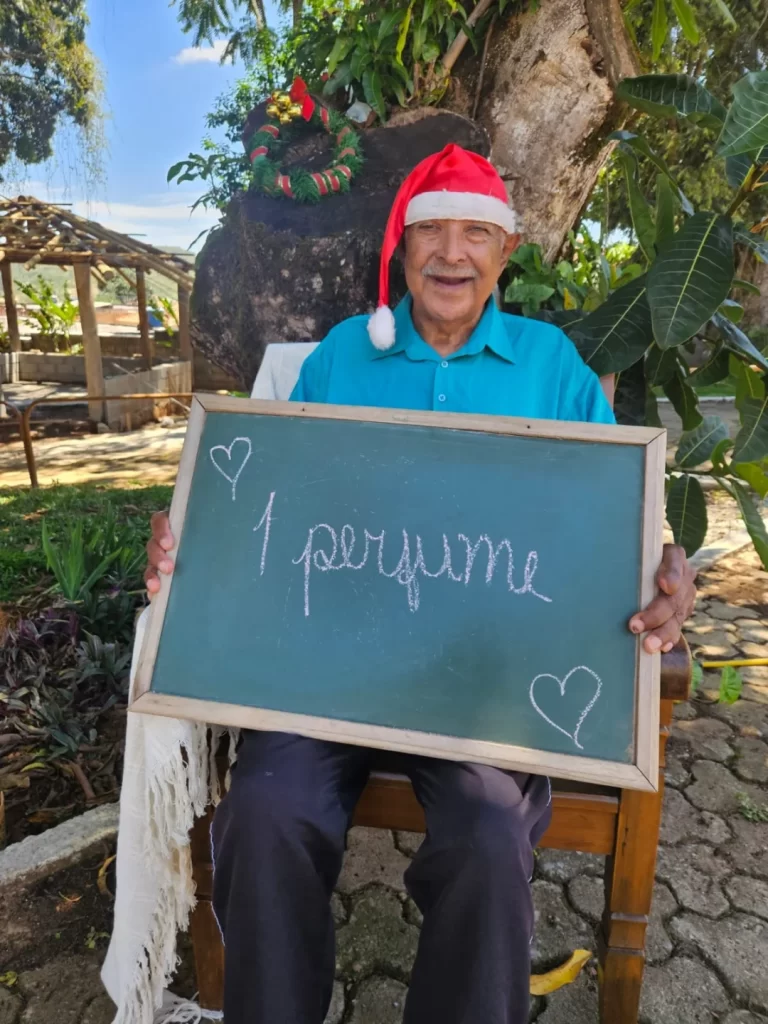 1 perfume